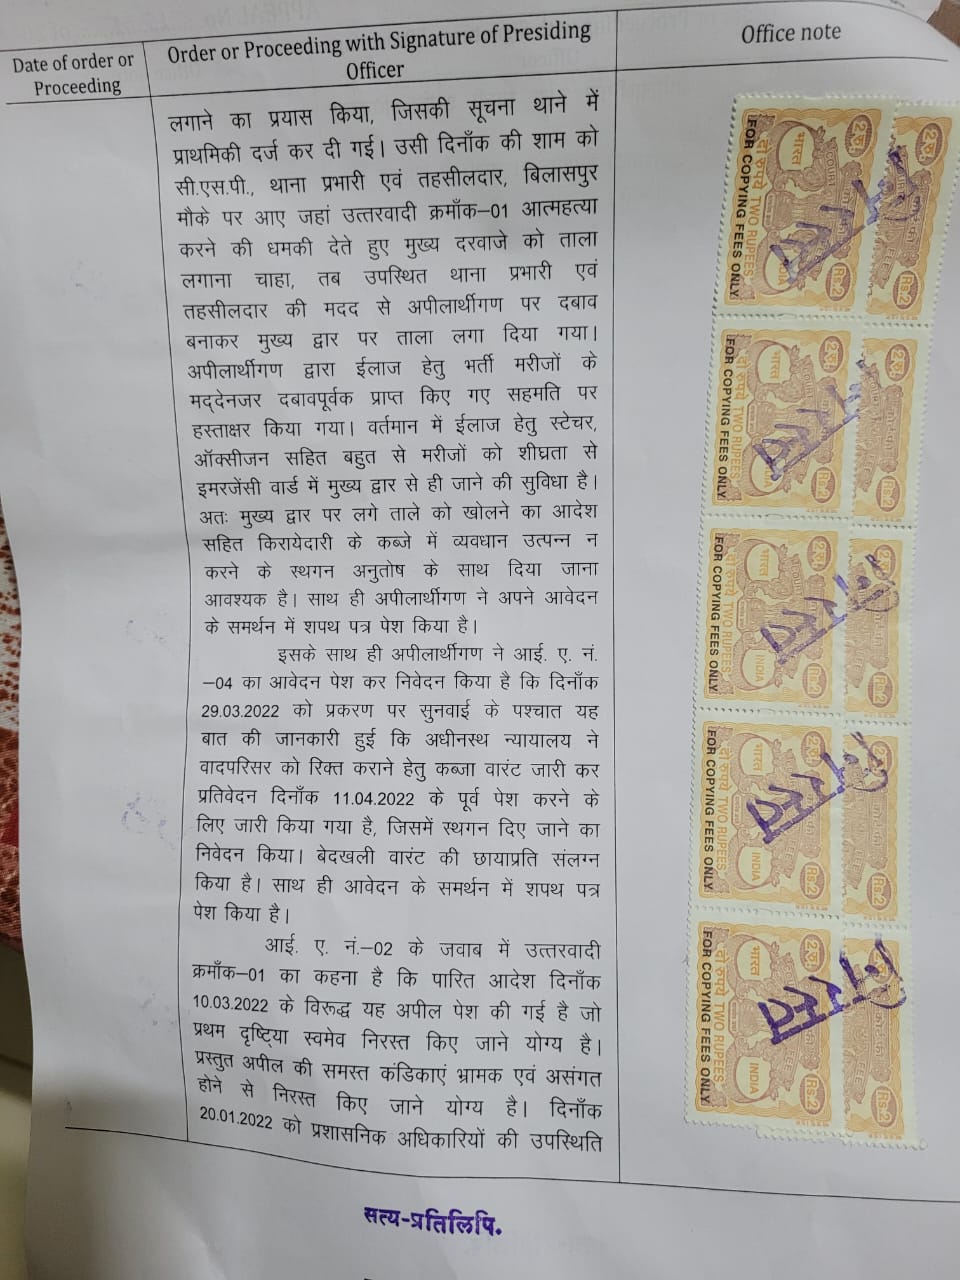 Date of order or
Proceeding
Order or Proceeding with Signature of Presiding
Officer
Office note
लगाने का प्रयास किया, जिसकी सूचना थाने में
प्राथमिकी दर्ज कर दी गई। उसी दिनाँक की शाम को
सी.एस.पी., थाना प्रभारी एवं तहसीलदार, बिलासपुर
मौके पर आए जहां उत्तरवादी क्रमाँक–01 आत्महत्या
करने की धमकी देते हुए मुख्य दरवाजे को ताला
लगाना चाहा, तब उपस्थित थाना प्रभारी एवं
तहसीलदार की मदद से अपीलार्थीगण पर दबाव
बनाकर मुख्य द्वार पर ताला लगा दिया गया।
अपीलार्थीगण द्वारा ईलाज हेतु भर्ती मरीजों के
मद्देनजर दबावपूर्वक प्राप्त किए गए सहमति पर
हस्ताक्षर किया गया। वर्तमान में ईलाज हेतु स्टेचर,
ऑक्सीजन सहित बहुत से मरीजों को शीघ्रता से
इमरजेंसी वार्ड में मुख्य द्वार से ही जाने की सुविधा है।
अतः मुख्य द्वार पर लगे ताले को खोलने का आदेश
सहित किरायेदारी के कब्जे में व्यवधान उत्पन्न न
करने के स्थगन अनुतोष के साथ दिया जाना
आवश्यक है। साथ ही अपीलार्थीगण ने अपने आवेदन
के समर्थन में शपथ पत्र पेश किया है।
इसके साथ ही अपीलार्थीगण ने आई. ए. नं.
–04 का आवेदन पेश कर निवेदन किया है कि दिनाँक
29.03.2022 को प्रकरण पर सुनवाई के पश्चात यह
बात की जानकारी हुई कि अधीनस्थ न्यायालय ने
वादपरिसर को रिक्त कराने हेतु कब्जा वारंट जारी कर
प्रतिवेदन दिनाँक 11.04.2022 के पूर्व पेश करने के
लिए जारी किया गया है, जिसमें स्थगन दिए जाने का
निवेदन किया। बेदखली वारंट की छायाप्रति संलग्न
किया है। साथ ही आवेदन के समर्थन में शपथ पत्र
पेश किया है।
आई. ए. नं.–02 के जवाब में उत्तरवादी
क्रमाँक–01 का कहना है कि पारित आदेश दिनाँक
10.03.2022 के विरूद्ध यह अपील पेश की गई है जो
प्रथम दृष्टि्या स्वमेव निरस्त किए जाने योग्य है।
प्रस्तुत अपील की समस्त कंडिकाएं भ्रामक एवं असंगत
होने से निरस्त किए जाने योग्य है। दिनाँक
20.01.2022 को प्रशासनिक अधिकारियों की उपस्थिति
2 रु.
भारत
INDIA
Rs.2
दो रुपये TWO RUPEES
FOR COPYING FEES ONLY
2 रु.
Rs.2
2 रु.
भारत
INDIA
Rs.2
दो रुपये TWO RUPEES
FOR COPYING FEES ONLY
2 रु.
Rs.2
2 रु.
भारत
INDIA
Rs.2
दो रुपये TWO RUPEES
FOR COPYING FEES ONLY
2 रु.
Rs.2
2 रु.
भारत
INDIA
Rs.2
दो रुपये TWO RUPEES
FOR COPYING FEES ONLY
2 रु.
Rs.2
2 रु.
भारत
INDIA
Rs.2
दो रुपये TWO RUPEES
FOR COPYING FEES ONLY
Rs.2
सत्य-प्रतिलिपि.